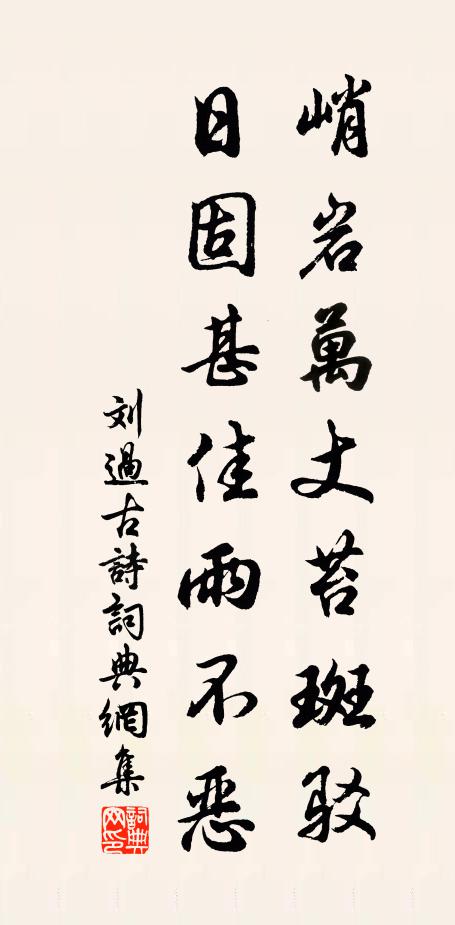 峭岩萬丈苔斑驳
日固甚佳雨不恶
刘過古詩詞典網集
詞典網印